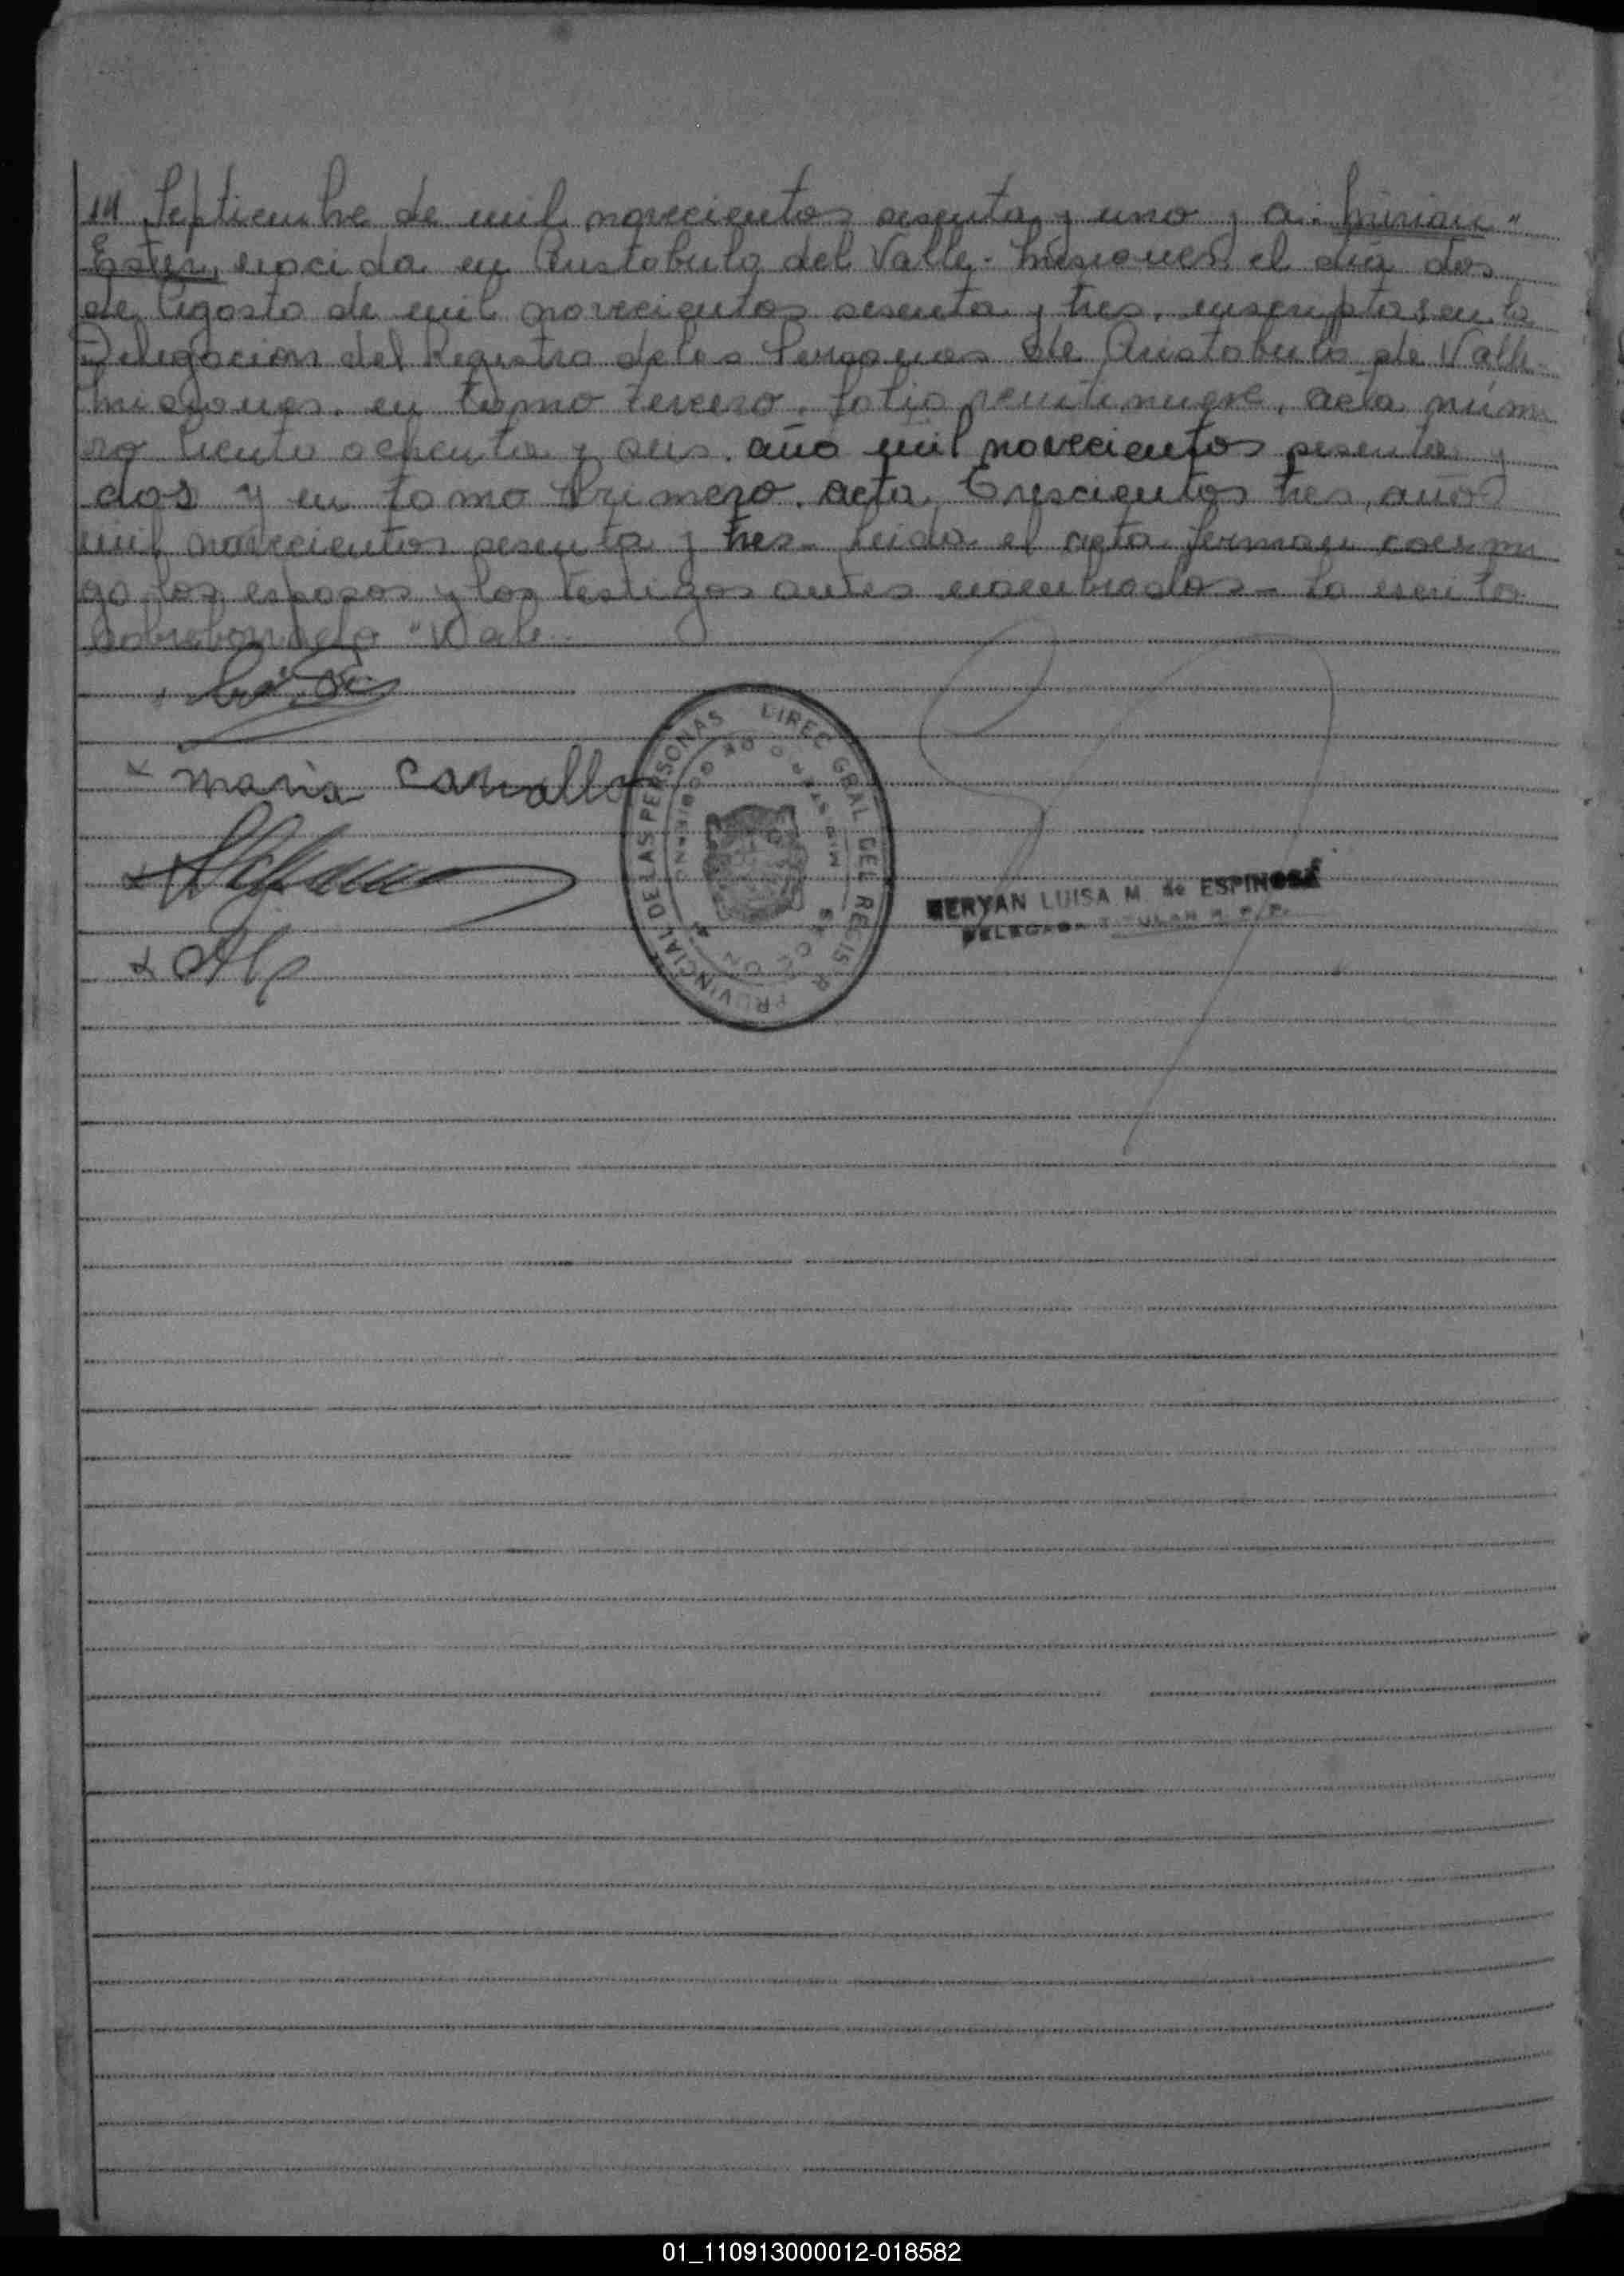 /// Septiembre de mil novecientos sesenta y uno y a: Mirian"
Ester, nacida en Aristobulo del Valle - Misiones, el dia dos
de Agosto de mil novecientos sesenta y tres, inscriptas en la
Delegacion del Registro de las Personas de Aristobulo de Valle-
Misiones, en tomo tercero, folio veintinueve, acta núme
ro Ciento ochenta y seis, año mil novecientos sesenta y
dos y en tomo Primero, acta Trescientos tres, año
mil novecientos sesenta y tres- Leida el acta firman conmi
go los esposos y los testigos antes nombrados - Lo escrito
sobreborrado "Vale
x Maria Carvallo
DIREC GRAL DEL REGISTR PROVINCIAL DE LAS PERSONAS
MERYAN LUISA M. de ESPINOSA
DELEGADA TITULAR R. P. P.
01_110913000012-018582